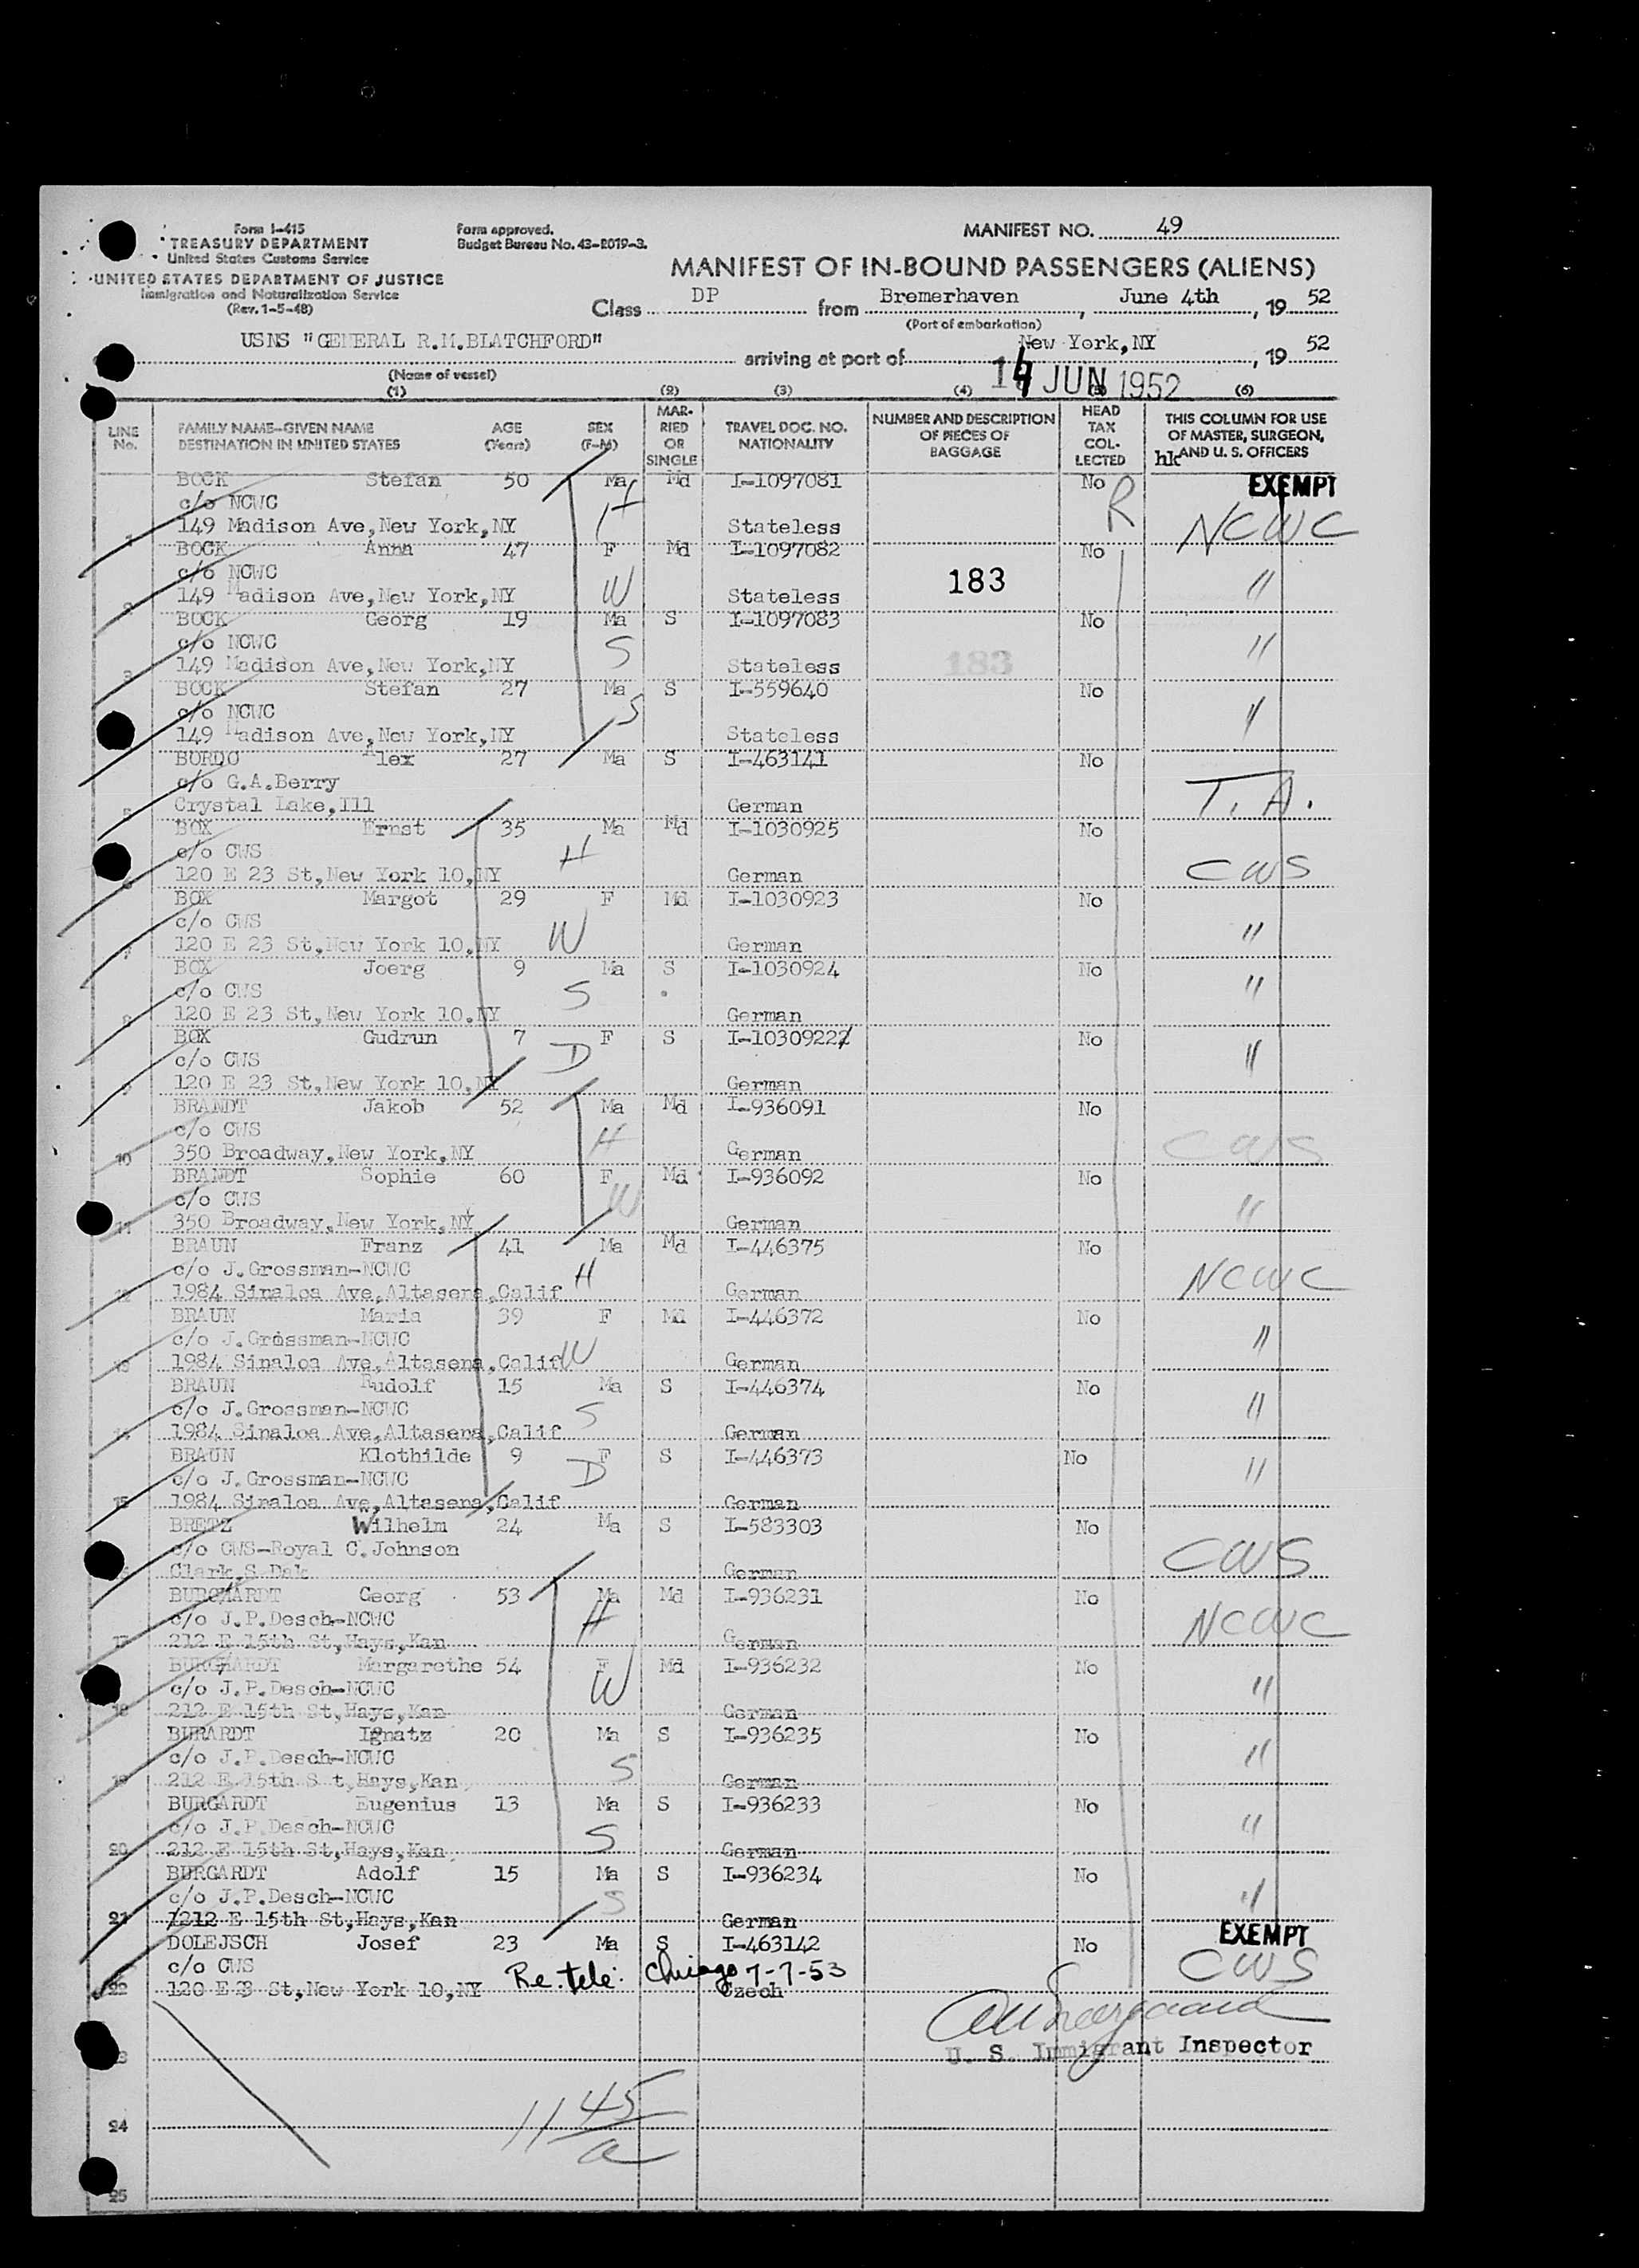 Form I-415
TREASURY DEPARTMENT
United States Customs Service
UNITED STATES DEPARTMENT OF JUSTICE
Immigration and Naturalization Service
(Rev. 1-5-48)
Form approved.
Budget Bureau No. 43-R019-3.
MANIFEST NO. 49
MANIFEST OF IN-BOUND PASSENGERS (ALIENS)
Class DP from Bremerhaven, June 4th, 19 52
(Port of embarkation)
USNS "GENERAL R.M.BLATCHFORD" arriving at port of New York,NY, 19 52
(Name of vessel)
14 JUN 1952
(1) (2) (3) (4) (5) (6)
LINE No. FAMILY NAME-GIVEN NAME DESTINATION IN UNITED STATES AGE (Years) SEX (F-M) MARRIED OR SINGLE TRAVEL DOC. NO. NATIONALITY NUMBER AND DESCRIPTION OF PIECES OF BAGGAGE HEAD TAX COLLECTED THIS COLUMN FOR USE OF MASTER, SURGEON, AND U. S. OFFICERS
hk
BOCK Stefan 50 Ma Md I-1097081 No EXEMPT
c/o NCWC H R NCWC
1 149 Madison Ave,New York,NY Stateless
BOCK Anna 47 F Md I-1097082 No
c/o NCWC W 183 "
2 149 Madison Ave,New York,NY Stateless
BOCK Georg 19 Ma S I-1097083 No
c/o NCWC S "
3 149 Madison Ave,New York,NY Stateless 183
BOCK Stefan 27 Ma S I-559640 No
c/o NCWC S "
149 Madison Ave,New York,NY Stateless
BORDO Alex 27 Ma S I-463141 No
c/o G.A.Berry T.A.
5 Crystal Lake,Ill German
BOX Ernst 35 Ma Md I-1030925 No
c/o CWS H CWS
6 120 E 23 St,New York 10,NY German
BOX Margot 29 F Md I-1030923 No
c/o CWS W "
7 120 E 23 St,New York 10,NY German
BOX Joerg 9 Ma S I-1030924 No
c/o CWS S "
8 120 E 23 St,New York 10.NY German
BOX Gudrun 7 F S I-1030922 No
c/o CWS D "
9 120 E 23 St,New York 10,NY German
BRANDT Jakob 52 Ma Md I-936091 No
c/o CWS H CWS
10 350 Broadway,New York,NY German
BRANDT Sophie 60 F Md I-936092 No
c/o CWS W "
11 350 Broadway,New York,NY German
BRAUN Franz 41 Ma Md I-446375 No
c/o J.Grossman-NCWC H NCWC
12 1984 Sinaloa Ave,Altasena,Calif German
BRAUN Maria 39 F Md I-446372 No
c/o J.Grossman-NCWC W "
13 1984 Sinaloa Ave,Altasena,Calif German
BRAUN Rudolf 15 Ma S I-446374 No
c/o J.Grossman-NCWC S "
14 1984 Sinaloa Ave,Altasena,Calif German
BRAUN Klothilde 9 F S I-446373 No
c/o J.Grossman-NCWC D "
15 1984 Sinaloa Ave,Altasena,Calif German
BRETZ Wilhelm 24 Ma S I-583303 No
c/o CWS-Royal C.Johnson CWS
Clark,S.Dak German
BURGHARDT Georg 53 Ma Md I-936231 No
c/o J.P.Desch-NCWC H NCWC
17 212 E 15th St,Hays,Kan German
BURGHARDT Margarethe 54 F Md I-936232 No
c/o J.P.Desch-NCWC W "
18 212 E 15th St,Hays,Kan German
BURARDT Ignatz 20 Ma S I-936235 No
c/o J.P.Desch-NCWC S "
19 212 E 15th S t,Hays,Kan German
BURGARDT Eugenius 13 Ma S I-936233 No
c/o J.P.Desch-NCWC S "
20 212 E 15th St,Hays,Kan German
BURGARDT Adolf 15 Ma S I-936234 No
c/o J.P.Desch-NCWC S "
21 212 E 15th St,Hays,Kan German
DOLEJSCH Josef 23 Ma S I-463142 No EXEMPT
c/o CWS Re. tele: Chicago 7-7-53 CWS
22 120 E 3 St,New York 10,NY Czech
U. S. Immigrant Inspector
23
24
11 45/a
25